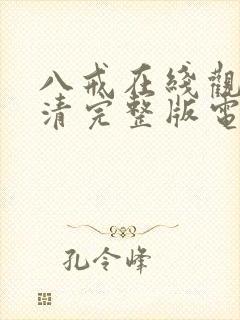 八戒在綫觀
清完整版電
孔令峰